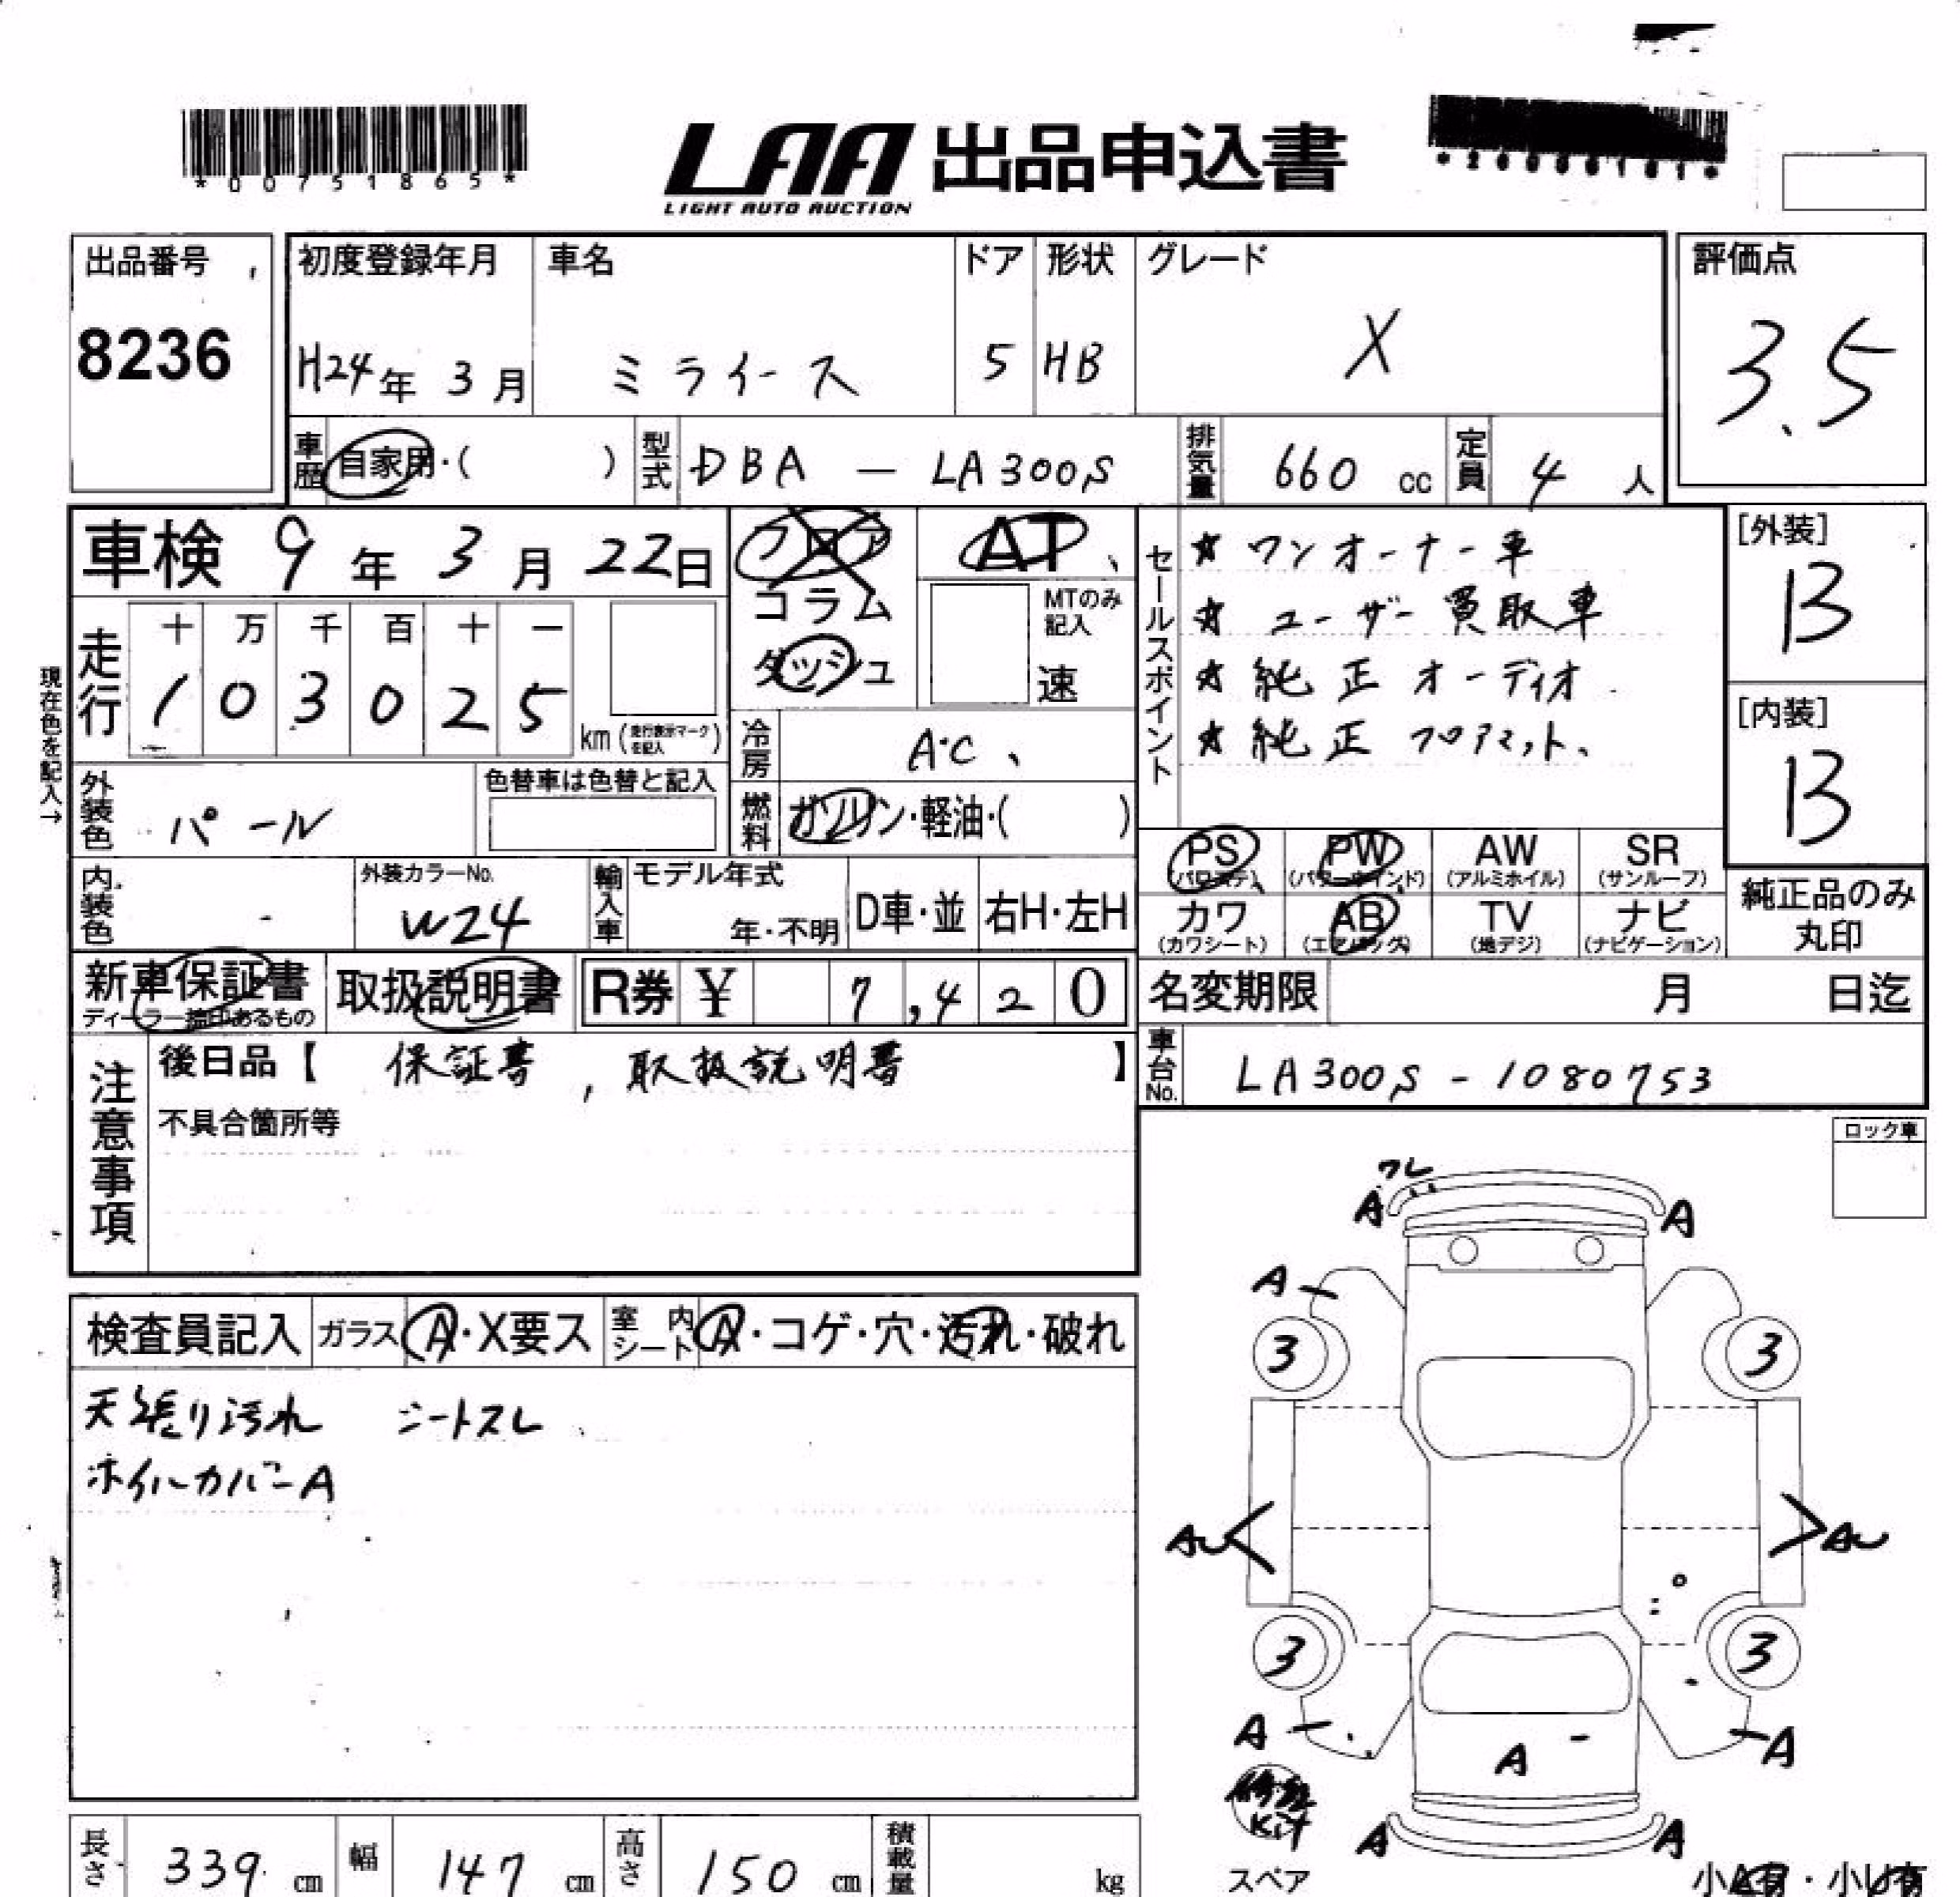 *00751865*
LAA 出品申込書
LIGHT AUTO AUCTION
出品番号
8236
初度登録年月
H24年 3月
車名
ミライース
ドア
5
形状
HB
グレード
X
評価点
3.5
車歴 自家用・( )
型式 DBA — LA300S
排気量 660 cc
定員 4 人
車検 9年 3月 22日
フロア
コラム
ダッシュ
AT
MTのみ記入
速
セールスポイント
★ ワンオーナー車
★ ユーザー買取車
★ 純正オーディオ
★ 純正フロアマット、
[外装]
B
[内装]
B
現在色を記入→
走行
十 万 千 百 十 一
1 0 3 0 2 5 km (走行表示マークを記入)
冷房 A・C、
外装色 パール
色替車は色替と記入
燃料 ガソリン・軽油・( )
PS (パワステ)
PW (パワーウインド)
AW (アルミホイル)
SR (サンルーフ)
カワ (カワシート)
AB (エアバッグ)
TV (地デジ)
ナビ (ナビゲーション)
純正品のみ丸印
内装色 -
外装カラーNo.
W24
輸入車
モデル年式
年・不明
D車・並
右H・左H
新車保証書
ディーラー捺印あるもの
取扱説明書
R券 ¥ 7,420
名変期限 月 日迄
車台No. LA300S - 1080753
注意事項
後日品【 保証書, 取扱説明書 】
不具合箇所等
ロック車
ワレ
A A
A
3 3
AU AU
3 3
A A A
Kit
A A
スペア
検査員記入
ガラス A・X要ス
室内シート A・コゲ・穴・汚れ・破れ
天張り汚れ シートスレ
ホイルカバーA
長さ 339 cm
幅 147 cm
高さ 150 cm
積載量 kg
小A有・小U有